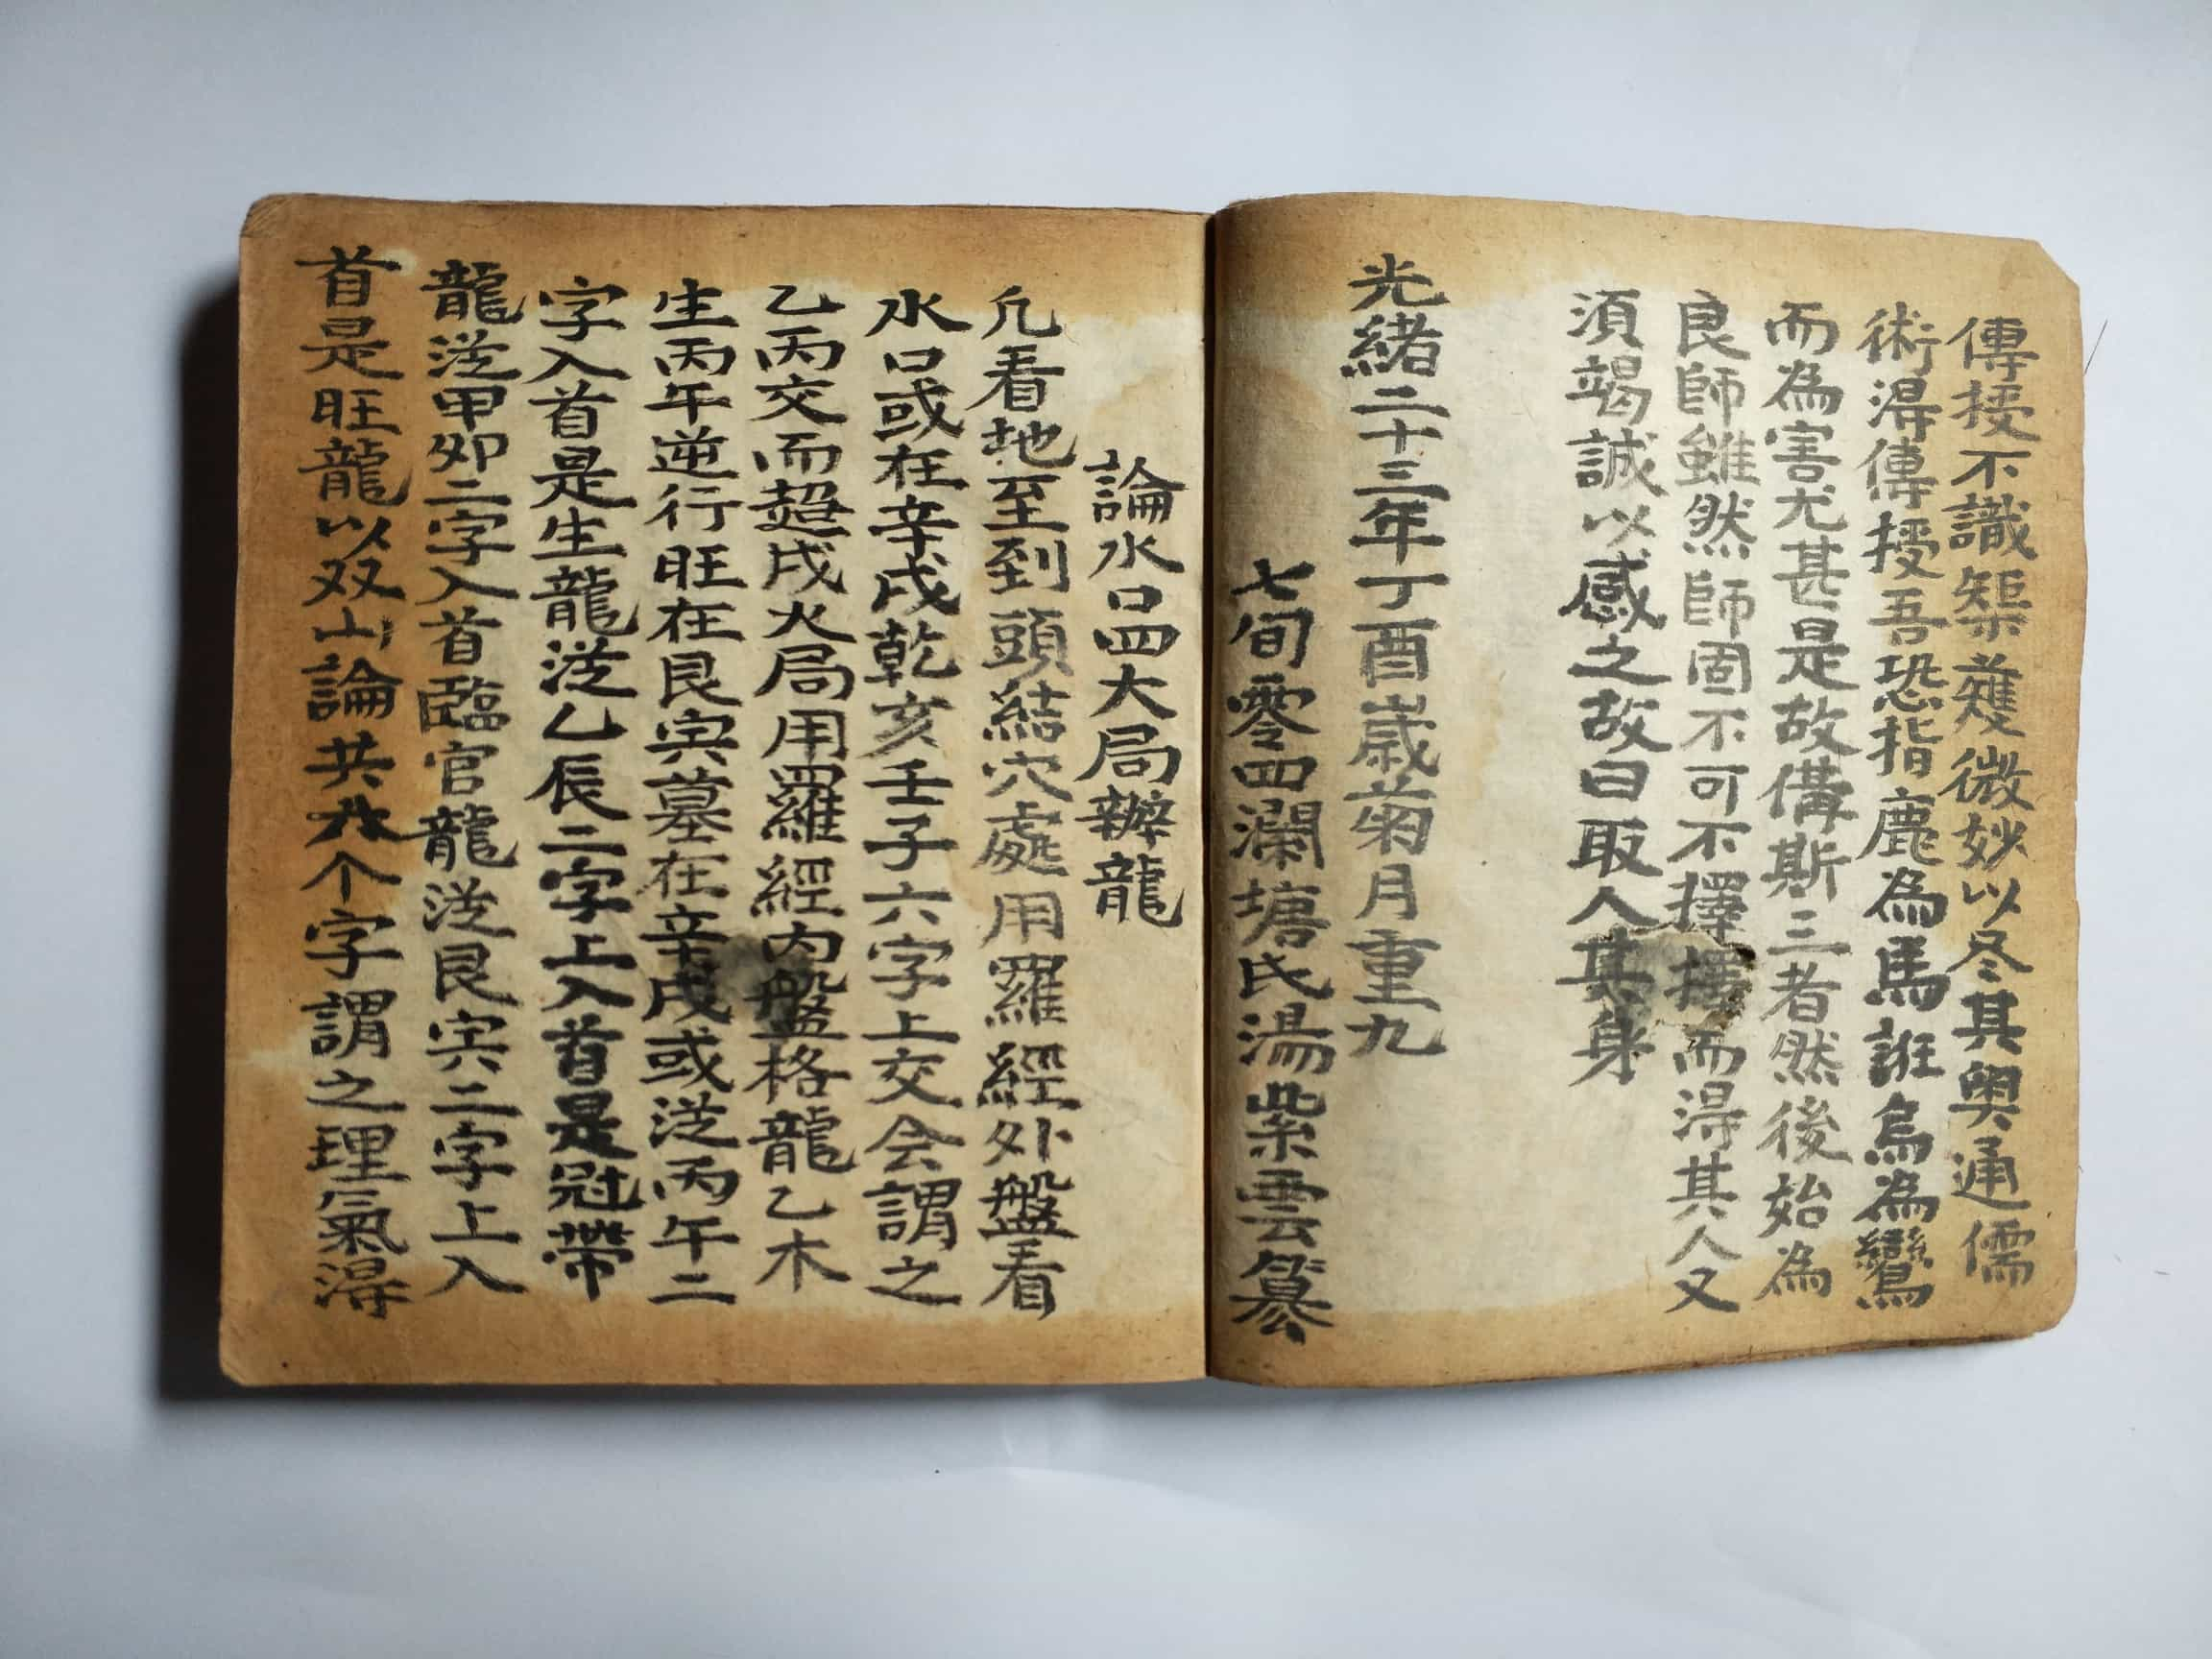 傳授不識榘蒦微妙以尽其奥通儒
術淂傳授吾恐指鹿為馬誑烏為鸞
而為害尤甚是故俻斯三者然後始為
良師雖然師固不可不擇擇而淂其人又
湏竭誠以感之故曰取人其身
光緒二十三年丁酉歲菊月重九
七旬零四瀾塘氏湯紫雲纂
論水口四大局辦龍
凢看地至到頭結穴處用羅經外盤看
水口或在辛戌乾亥壬子六字上交会謂之
乙丙交而趨戌火局用羅經内盤格龍乙木
生丙午逆行旺在艮寅墓在辛戌或従丙午二
字入首是生龍従乙辰二字上入首是冠帶
龍従甲卯二字入首臨官龍従艮寅二字上入
首是旺龍以双山論共个字謂之理氣淂